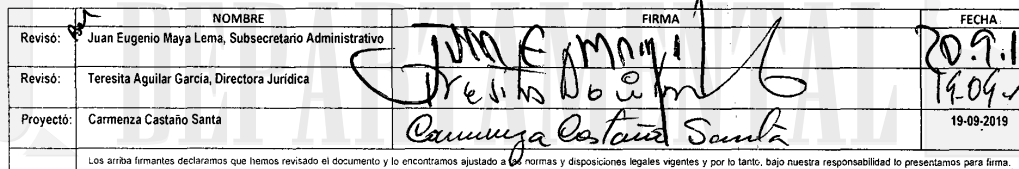 NOMBRE FIRMA FECHA
Revisó: Juan Eugenio Maya Lema, Subsecretario Administrativo 20.9.1
Revisó: Teresita Aguilar García, Directora Jurídica 19-09-
Proyectó: Carmenza Castaño Santa Carmenza Castaño Santa 19-09-2019
Los arriba firmantes declaramos que hemos revisado el documento y lo encontramos ajustado a las normas y disposiciones legales vigentes y por lo tanto, bajo nuestra responsabilidad lo presentamos para firma.
DEPARTAMENTAL